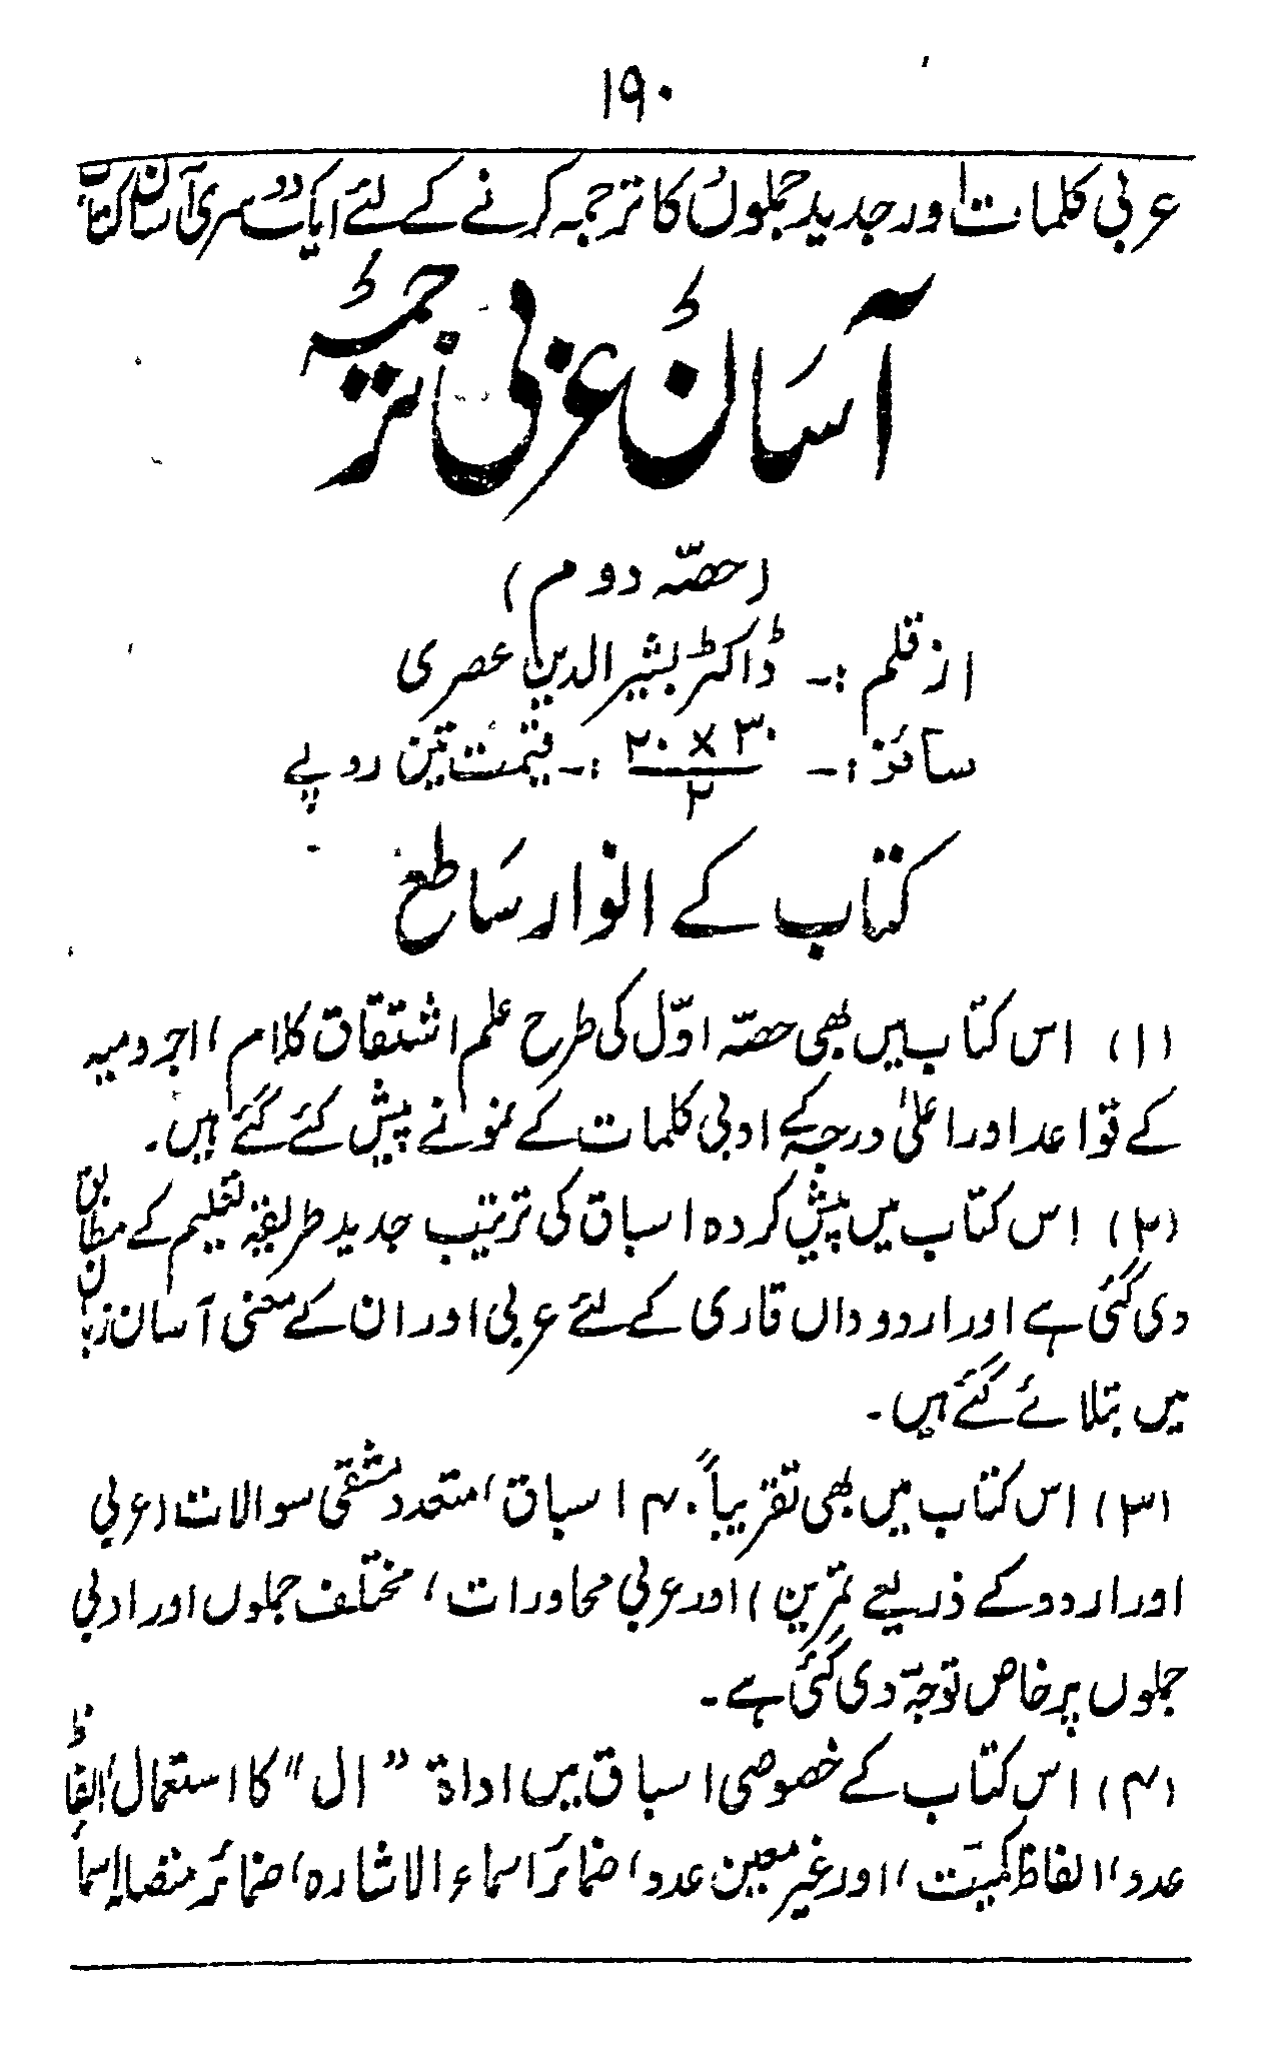 ۱۹۰
عربی کلمات اور جدید جملوں کا ترجمہ کرنے کے لئے ایک دوسری آسان کتاب
آسان عربی ترجمہ
(حصّہ دوم)
از قلم :۔ ڈاکٹر بشیر الدین عصری
سائز :۔ ۳۰ × ۲۰ / ۲ :۔ قیمت تین روپے
کتاب کے انوار ساطع
(۱) اس کتاب میں بھی حصّہ اوّل کی طرح علم اشتقاق کلام، اجرومیہ
کے قواعد اور اعلیٰ درجہ کے ادبی کلمات کے نمونے پیش کئے گئے ہیں۔
(۲) اس کتاب میں پیش کردہ اسباق کی ترتیب جدید طریقۂ تعلیم کے مطابق
دی گئی ہے اور اردو داں قاری کے لئے عربی اور ان کے معنی آسان زبان
میں بتلائے گئے ہیں۔
(۳) اس کتاب میں بھی تقریباً ۴۰ اسباق، متعدد مشقی سوالات (عربی
اور اردو کے ذریعے تمرین) اور عربی محاورات، مختلف جملوں اور ادبی
جملوں پر خاص توجہّ دی گئی ہے۔
(۴) اس کتاب کے خصوصی اسباق میں اداۃ "ال" کا استعمال، الفاظ
عدد، الفاظ کمیّت، اور غیر معین عدد، ضمائر اسماء الاشارہ، ضمائر منفصلہ، اسماء